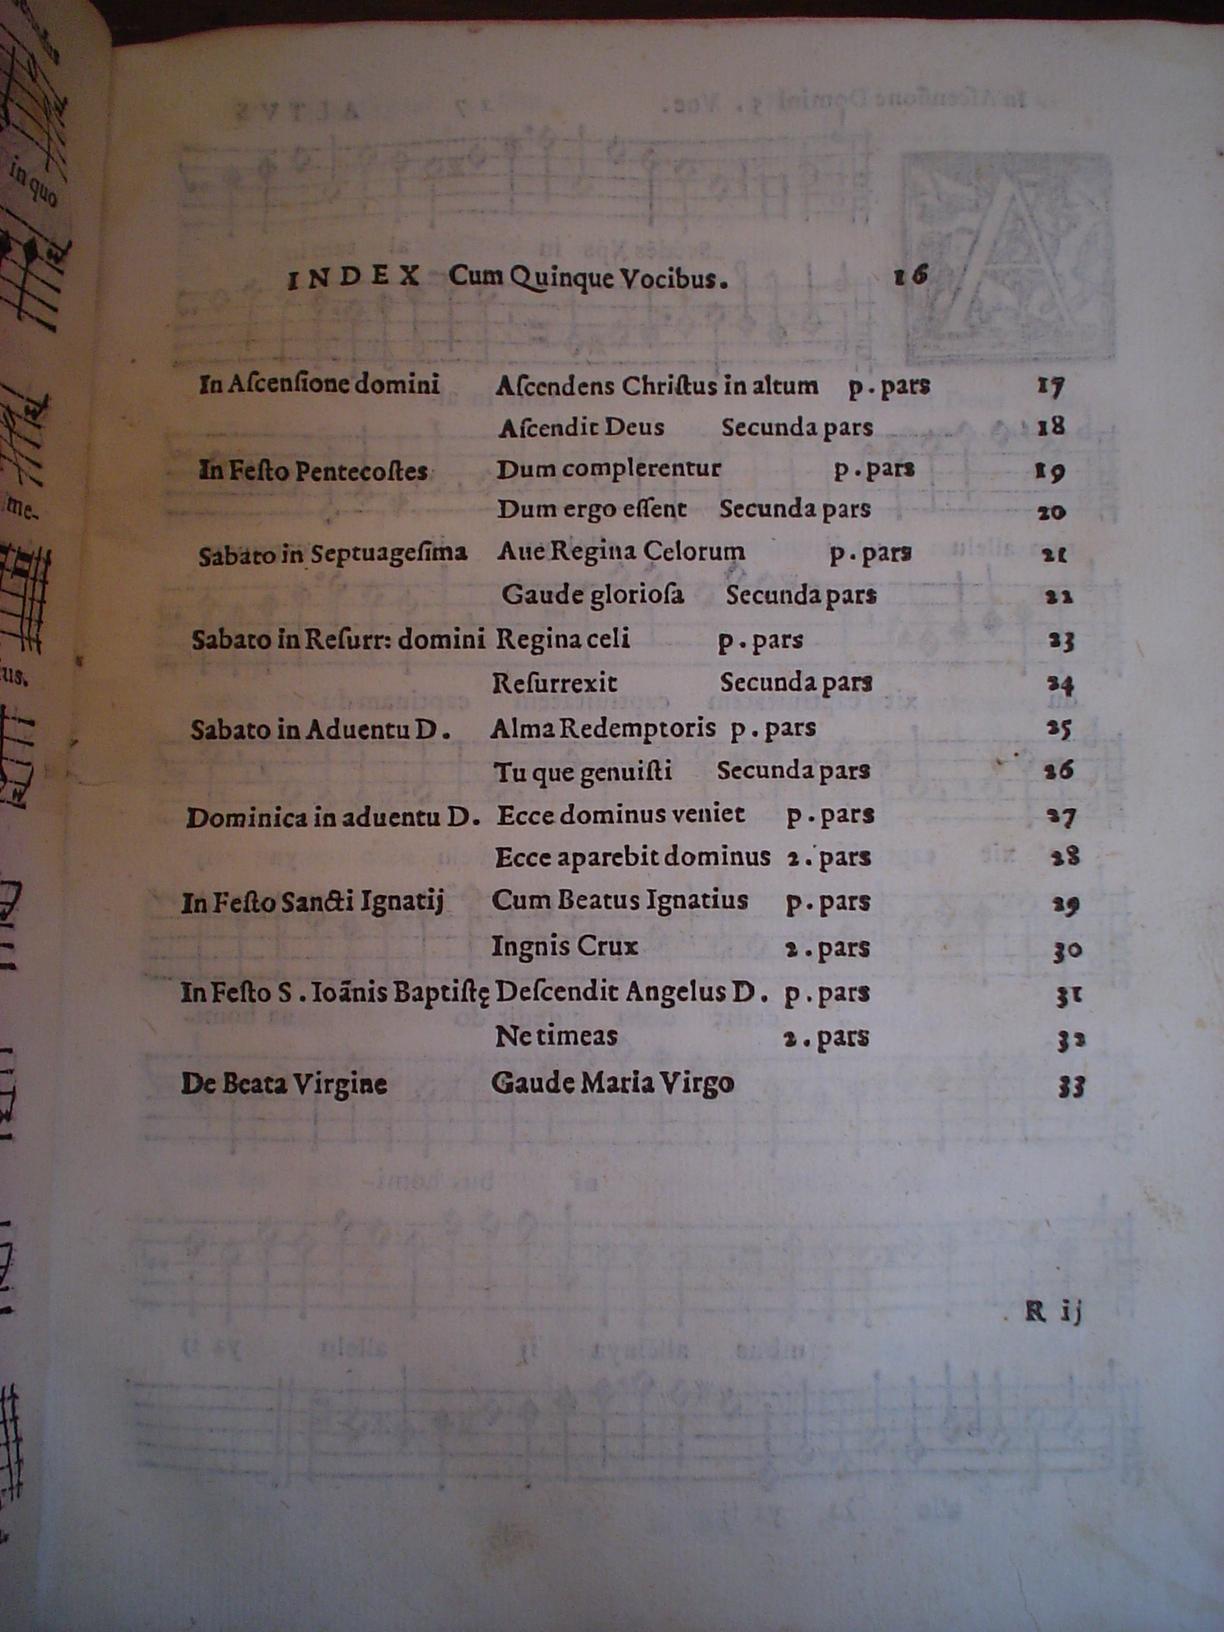 INDEX Cum Quinque Vocibus. 16
In Aſcenſione domini Aſcendens Chriſtus in altum p. pars 17
Aſcendit Deus Secunda pars 18
In Feſto Pentecoſtes Dum complerentur p. pars 19
Dum ergo eſſent Secunda pars 20
Sabato in Septuageſima Aue Regina Celorum p. pars 21
Gaude glorioſa Secunda pars 22
Sabato in Reſurr: domini Regina celi p. pars 23
Reſurrexit Secunda pars 24
Sabato in Aduentu D. Alma Redemptoris p. pars 25
Tu que genuiſti Secunda pars 26
Dominica in aduentu D. Ecce dominus veniet p. pars 27
Ecce aparebit dominus 2. pars 28
In Feſto Sancti Ignatij Cum Beatus Ignatius p. pars 29
Ingnis Crux 2. pars 30
In Feſto S. Ioãnis Baptiſtę Deſcendit Angelus D. p. pars 31
Ne timeas 2. pars 32
De Beata Virgine Gaude Maria Virgo 33
R ij
in quo
me-
us.